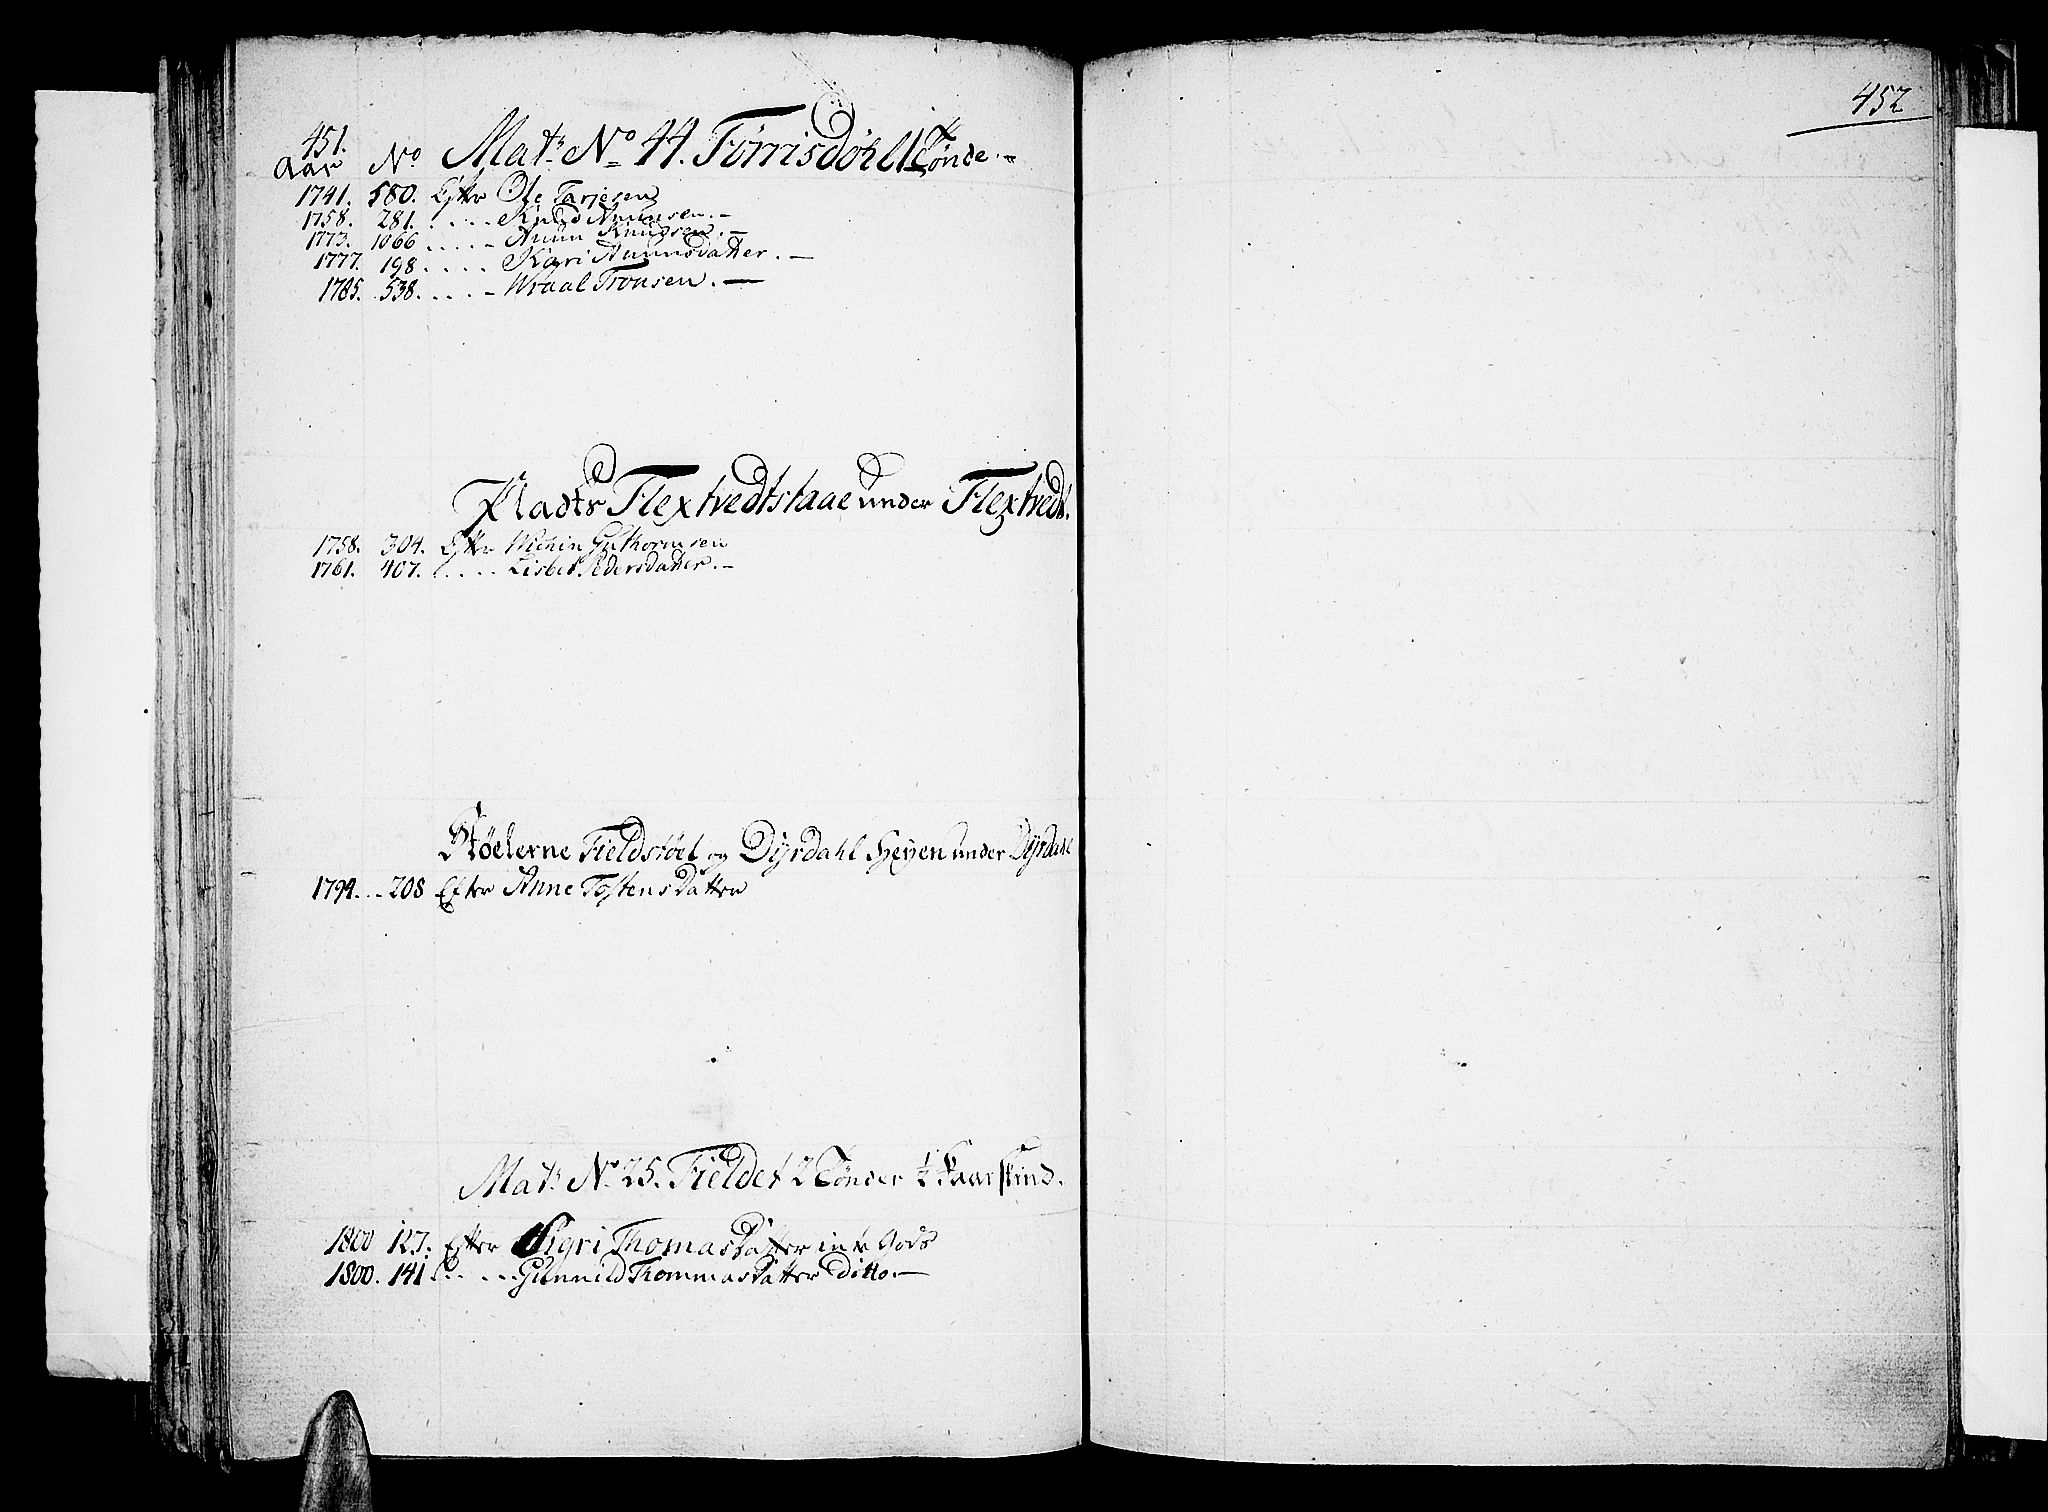 451.
Aar No Matr No 44. Tørrisdøhl 1 Tønde.
1741. 580. Efter Ole Tarjesen
1758. 281. . . . . - Knud Anunsen. -
1773. 1066 . . . . . - Anun Knudsen. -
1777. 198. . . . . Kari Anunsdatter. -
1785. 538. . . . . - Wraal Tronsen. -
Plads Flextvedtstaae under Flextvedt.
1758. 304. Efter Guthormsen
1761. 407. . . . . . Lisbet Pedersdatter. -
Støelerne Fieldstøel og Dÿrdahl Heÿen under Dÿrdahl
1794. . - 208 Efter Anne Tostensdatter
Matr No 25. Fieldet 2 Tønder ½ Kaarskind.
1800 127. Efter Sigri Thomasdatter inte Gods
1800. 141. . . . . . Gunnild Thommasdatter Ditto. -
452